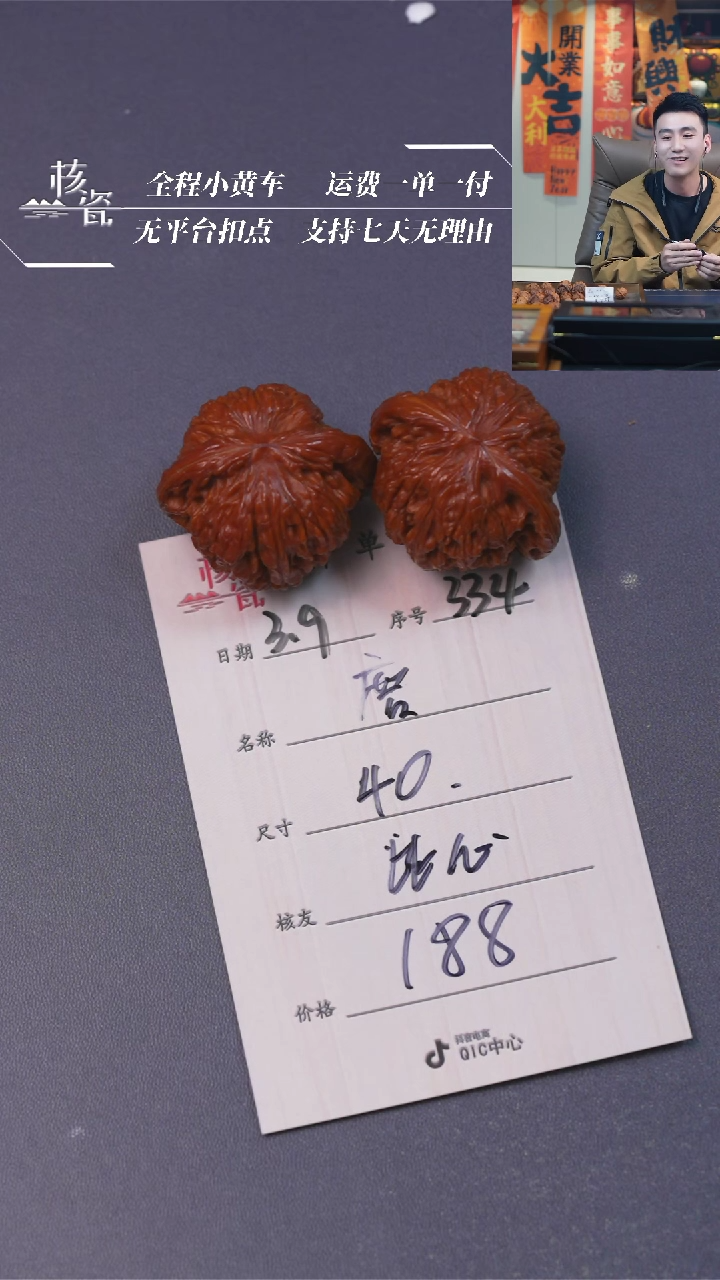 核瓷
全程小黄车 运费一单一付
无平台扣点 支持七天无理由
開業
大吉
大利
事事如意
財興
单
日期 3.9 序号 334
名称
尺寸 40.
核友
价格 188
抖音电商
QIC中心